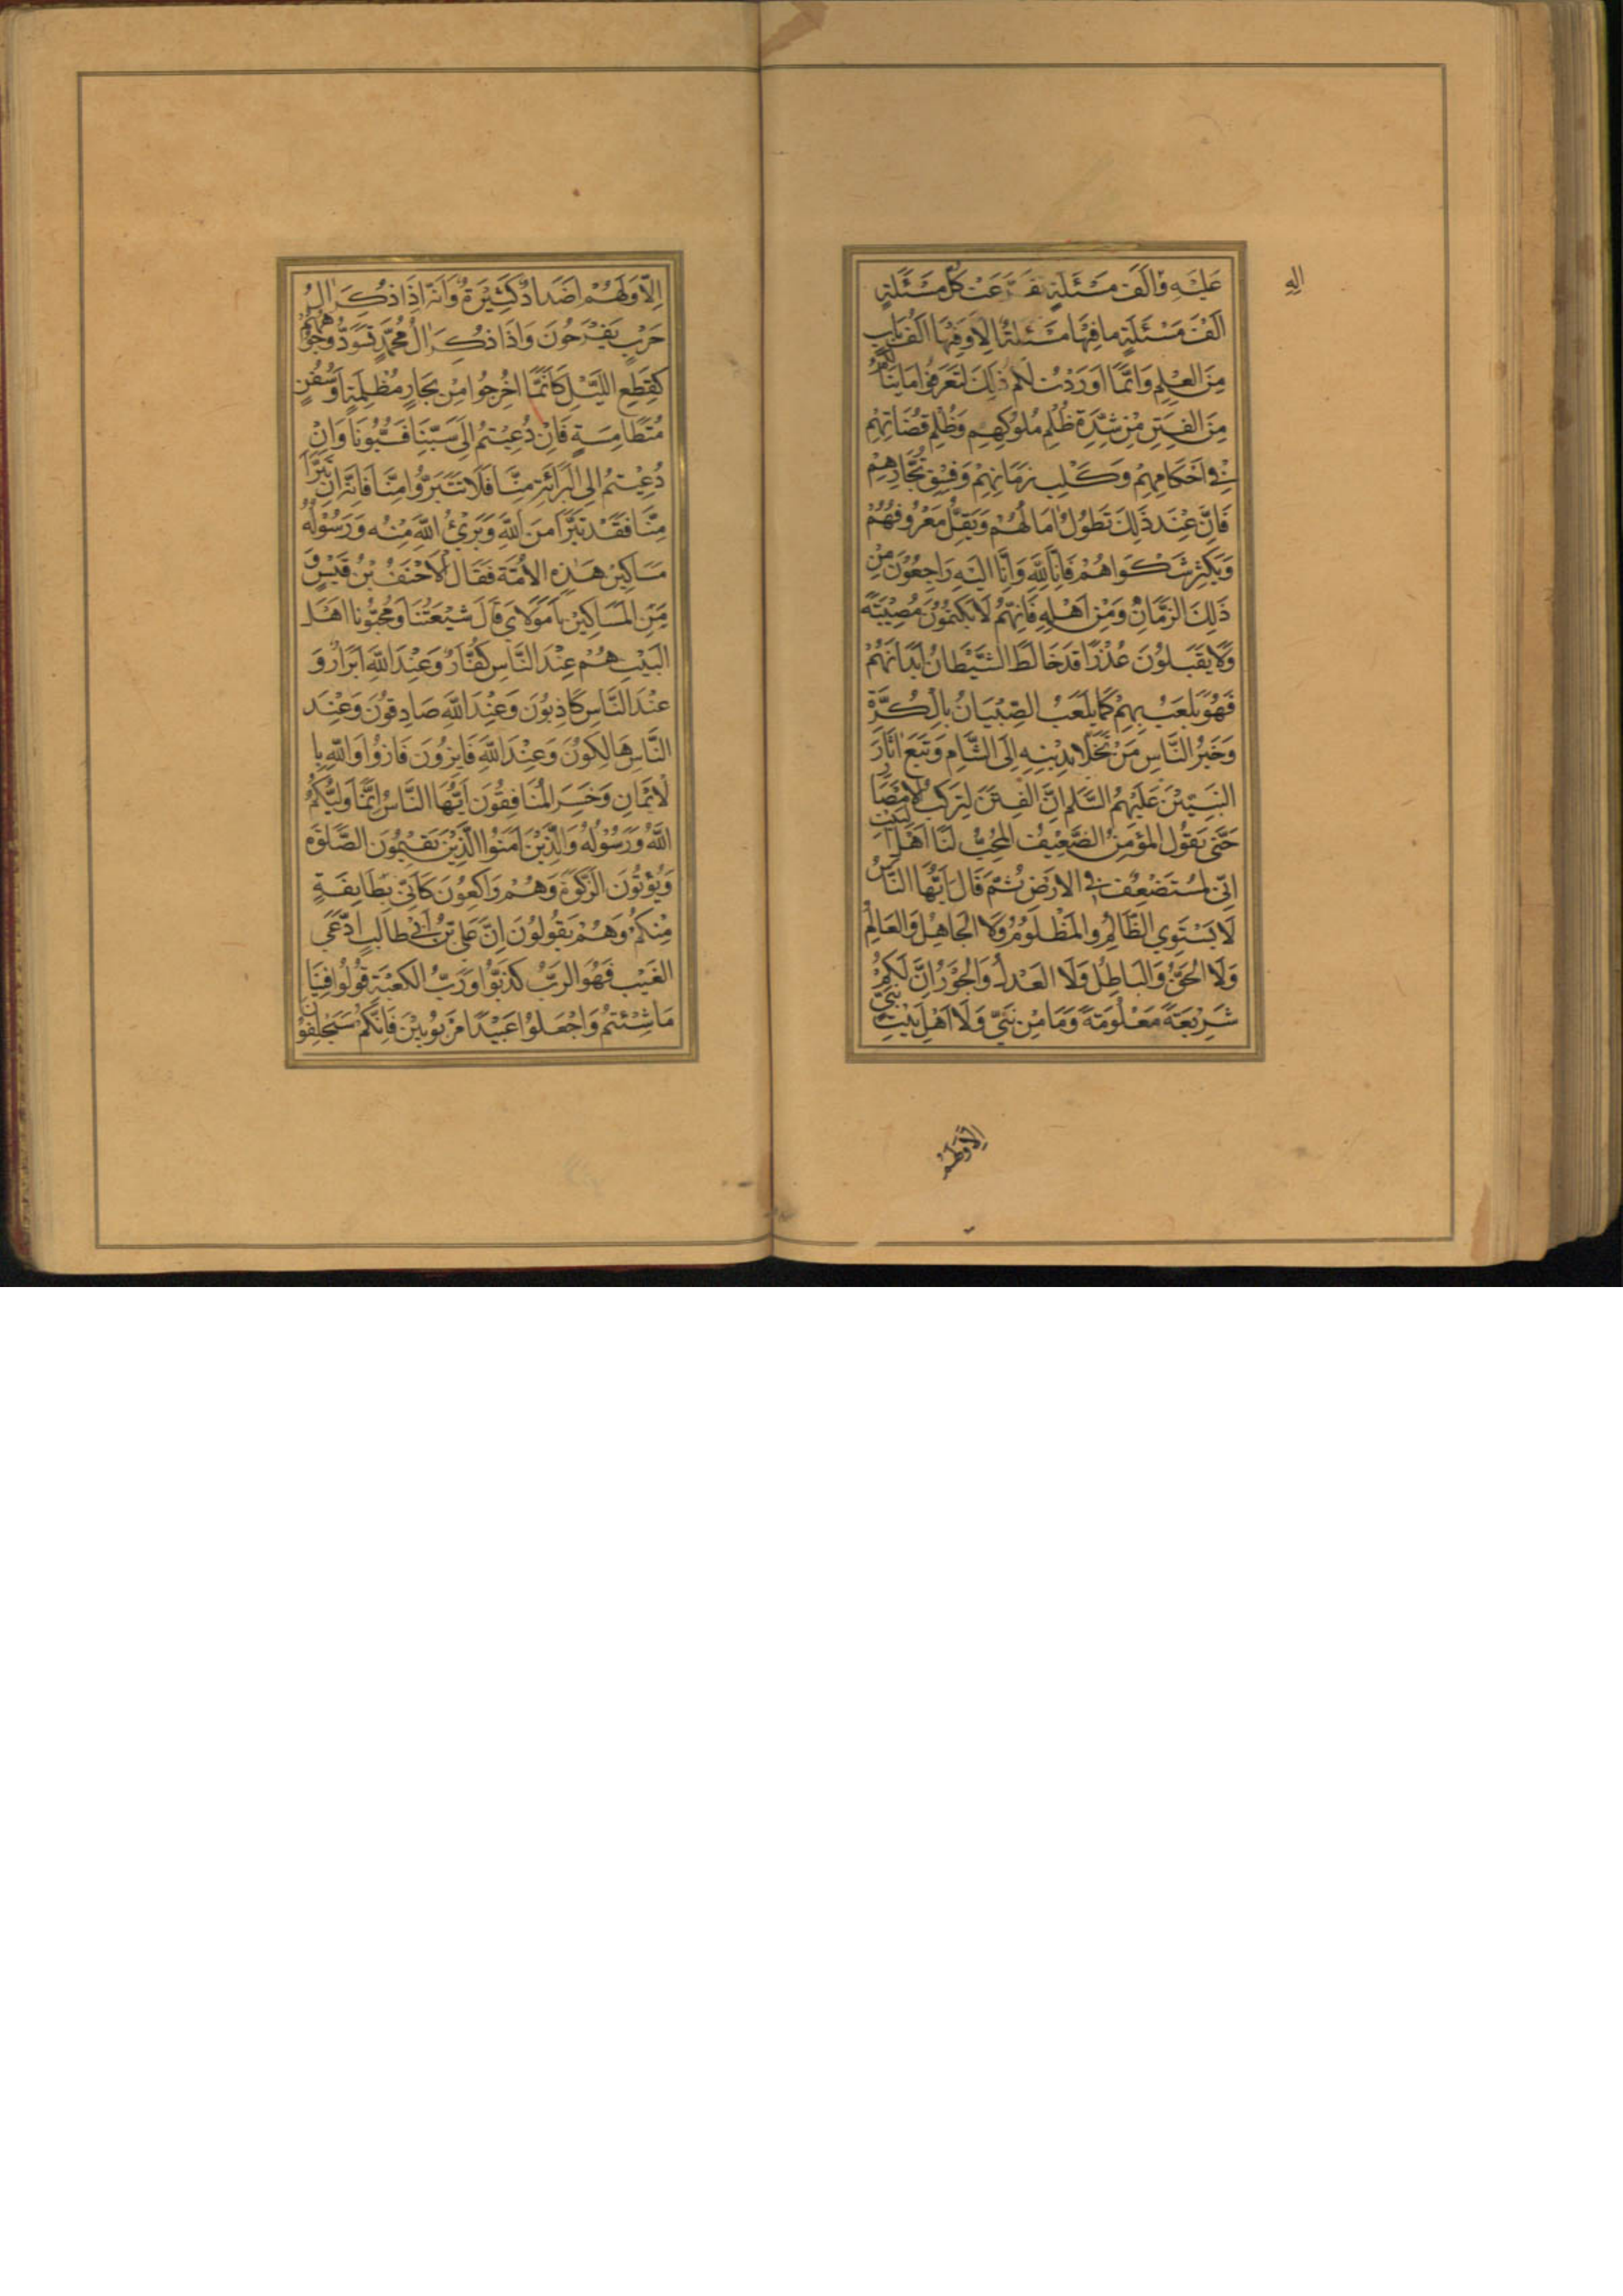 عَلَيْهِ وَآلِهِ اَلْفَ مَسْئَلَةٍ تَفَرَّعَتْ كُلُّ مَسْئَلَةٍ
اَلْفَ مَسْئَلَةٍ ما فِيْهَا مَسْئَلَةٌ اِلَّا وَفِيْهَا اَلْفُ بَابٍ
مِنَ الْعِلْمِ وَاِنَّمَا اَوْرَدْتُ لَكُمْ ذٰلِكَ لِتَعْرِفُوا مَا يَنَالُكُمْ
مِنَ الْفِتَنِ مِنْ شِدَّةِ ظُلْمِ مُلُوْكِهِمْ وَظُلْمِ قُضَاتِهِمْ
فِيْ اَحْكَامِهِمْ وَكَلَبِ زَمَانِهِمْ وَفِسْقِ تُجَّارِهِمْ
فَاِنَّ عِنْدَ ذٰلِكَ تَطُوْلُ اٰمَالُهُمْ وَيَقِلُّ مَعْرُوْفُهُمْ
وَيَكْثُرُ شَكْوَاهُمْ فَاِنَّا لِلّٰهِ وَاِنَّا اِلَيْهِ رَاجِعُوْنَ مِنْ
ذٰلِكَ الزَّمَانِ وَمِنْ اَهْلِهِ فَاِنَّهُمْ لَا يَكْتُمُوْنَ مُصِيْبَتَهُ
وَلَا يَقْبَلُوْنَ عُذْرًا قَدْ خَالَطَ الشَّيْطَانُ اَبْدَانَهُمْ
فَهُوَ يَلْعَبُ بِهِمْ كَمَا يَلْعَبُ الصِّبْيَانُ بِالْكُرَّةِ
وَخَيْرُ النَّاسِ مَنْ تَخَلَّا بِدِيْنِهِ اِلَى الشَّامِ وَتَبِعَ اٰثَارَ
النَّبِيِّيْنَ عَلَيْهِمُ السَّلٰمُ اِنَّ الْفِتَنَ لِتَرْكَبُ الْاَمْصَارَ
حَتّٰى يَقُوْلَ الْمُؤْمِنُ الضَّعِيْفُ الْمُحِبُّ لَنَا اَهْلَ الْبَيْتِ
اِنِّيْ لَمُسْتَضْعَفٌ فِي الْاَرْضِ ثُمَّ قَالَ اَيُّهَا النَّاسُ
لَا يَسْتَوِي الظَّالِمُ وَالْمَظْلُوْمُ وَلَا الْجَاهِلُ وَالْعَالِمُ
وَلَا الْحَقُّ وَالْبَاطِلُ وَلَا الْعَدْلُ وَالْجَوْرُ اِنَّ لَكُمْ
شَرِيْعَةً مَعْلُوْمَةً وَمَا مِنْ نَبِيٍّ وَلَا اَهْلِ بَيْتِ نَبِيٍّ
اِلَّا وَلَهُمْ
اِلَّا وَلَهُمْ اَضْدَادٌ كَثِيْرَةٌ وَاَنَّهُ اِذَا ذُكِرَ اٰلُ
حَرْبٍ يَفْرَحُوْنَ وَاِذَا ذُكِرَ اٰلُ مُحَمَّدٍ تَسْوَدُّ وُجُوْهُهُمْ
كَقِطَعِ اللَّيْلِ كَاَنَّمَا اُخْرِجُوْا مِنْ بِحَارٍ مُظْلِمَةٍ اَوْ سُفُنٍ
مُتَطَامِسَةٍ فَاِنْ دُعِيْتُمْ اِلٰى سَبِّنَا فَسُبُّوْنَا وَاِنْ
دُعِيْتُمْ اِلَى الْبَرَائَةِ مِنَّا فَلَا تَتَبَرَّؤُا مِنَّا فَاِنَّهُ اِنْ تَبَرَّأَ
مِنَّا فَقَدْ تَبَرَّأَ مِنَ اللّٰهِ وَبَرِئَ اللّٰهُ مِنْهُ وَرَسُوْلُهُ
مَسَاكِيْنُ هٰذِهِ الْاُمَّةِ فَقَالَ الْاَحْنَفُ بْنُ قَيْسٍ وَ
مَنِ الْمَسَاكِيْنُ يَا مَوْلَايَ قَالَ شِيْعَتُنَا وَمُحِبُّوْنَا اَهْلَ
الْبَيْتِ هُمْ عِنْدَ النَّاسِ كُفَّارٌ وَعِنْدَ اللّٰهِ اَبْرَارٌ وَ
عِنْدَ النَّاسِ كَاذِبُوْنَ وَعِنْدَ اللّٰهِ صَادِقُوْنَ وَعِنْدَ
النَّاسِ هَالِكُوْنَ وَعِنْدَ اللّٰهِ فَايِزُوْنَ فَازُوْا وَاللّٰهِ بِا
لْاِيْمَانِ وَخَسِرَ الْمُنَافِقُوْنَ اَيُّهَا النَّاسُ اِنَّمَا وَلِيُّكُمُ
اللّٰهُ وَرَسُوْلُهُ وَالَّذِيْنَ اٰمَنُوا الَّذِيْنَ يُقِيْمُوْنَ الصَّلٰوةَ
وَيُؤْتُوْنَ الزَّكٰوةَ وَهُمْ رَاكِعُوْنَ كَاَنِّيْ بِطَايِفَةٍ
مِنْكُمْ وَهُمْ يَقُوْلُوْنَ اِنَّ عَلِيَّ بْنَ اَبِيْ طَالِبٍ ادَّعٰى
الْغَيْبَ فَهُوَ الرَّبُّ كَذَبُوْا وَرَبِّ الْكَعْبَةِ قُوْلُوْا فِيْنَا
مَا شِئْتُمْ وَاجْعَلُوْا عَبِيْدًا مَرْبُوْبِيْنَ فَاِنَّكُمْ سَتَخْلُفُوْنَ